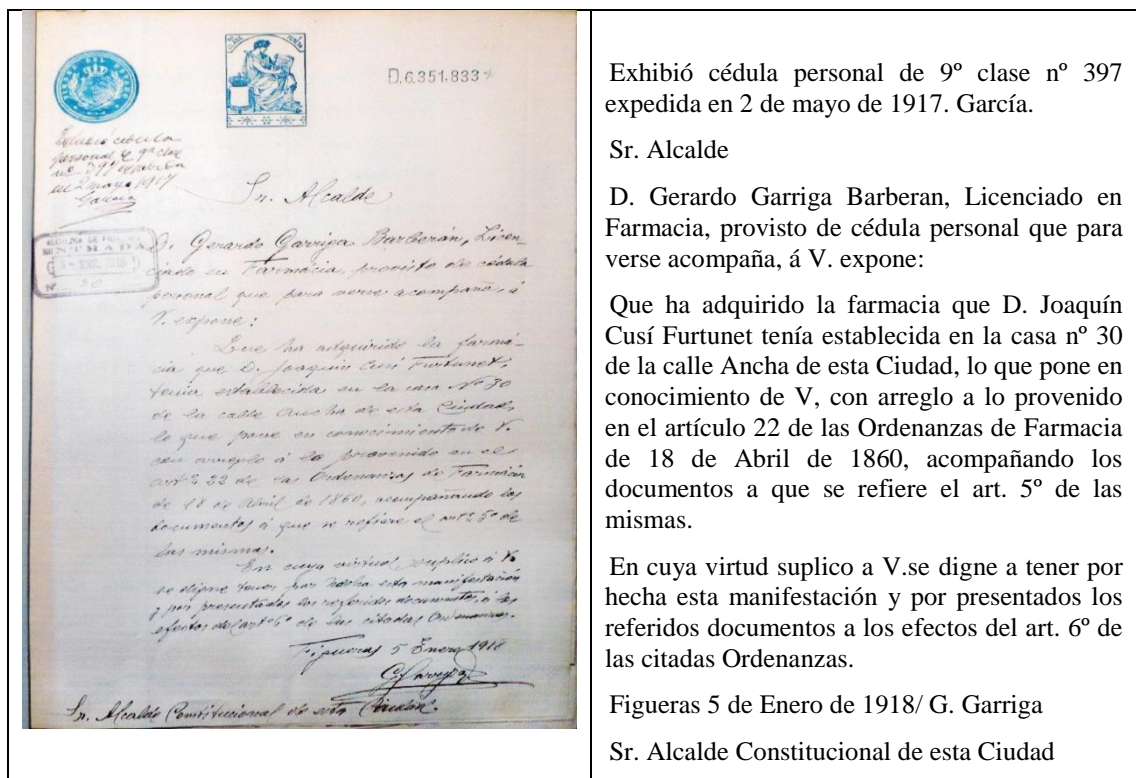 D.6.351.833
Exhibió cédula
personal de 9ª clase
nº 397 expedida
en 2 mayo 1917
García
Sr. Alcalde
D. Gerardo Garriga Barberán, Licen-
ciado en Farmácia, provisto de cédula
personal que para verse acompaña, á
V. expone:
Que ha adquirido la farmá-
cia que D. Joaquín Cusí Furtunet,
tenía establecida en la casa Nº 30
de la calle Ancha de esta Ciudad,
lo que pone en conocimiento de V.
con arreglo á lo provenido en el
artº 22 de las Ordenanzas de Farmácia
de 18 de Abril de 1860, acompañando los
documentos á que se refiere el artº 5º de
las mismas.
En cuya virtud, suplico á V.
se digne tener por hecha esta manifestación
y por presentados los referidos documentos, á los
efectos del artº 6º de las citadas Ordenanzas.
Figueras 5 Enero 1918
G. Garriga
Sr. Alcalde Constitucional de esta Ciudad.
Exhibió cédula personal de 9º clase nº 397
expedida en 2 de mayo de 1917. García.
Sr. Alcalde
D. Gerardo Garriga Barberan, Licenciado en
Farmacia, provisto de cédula personal que para
verse acompaña, á V. expone:
Que ha adquirido la farmacia que D. Joaquín
Cusí Furtunet tenía establecida en la casa nº 30
de la calle Ancha de esta Ciudad, lo que pone en
conocimiento de V, con arreglo a lo provenido
en el artículo 22 de las Ordenanzas de Farmacia
de 18 de Abril de 1860, acompañando los
documentos a que se refiere el art. 5º de las
mismas.
En cuya virtud suplico a V.se digne a tener por
hecha esta manifestación y por presentados los
referidos documentos a los efectos del art. 6º de
las citadas Ordenanzas.
Figueras 5 de Enero de 1918/ G. Garriga
Sr. Alcalde Constitucional de esta Ciudad